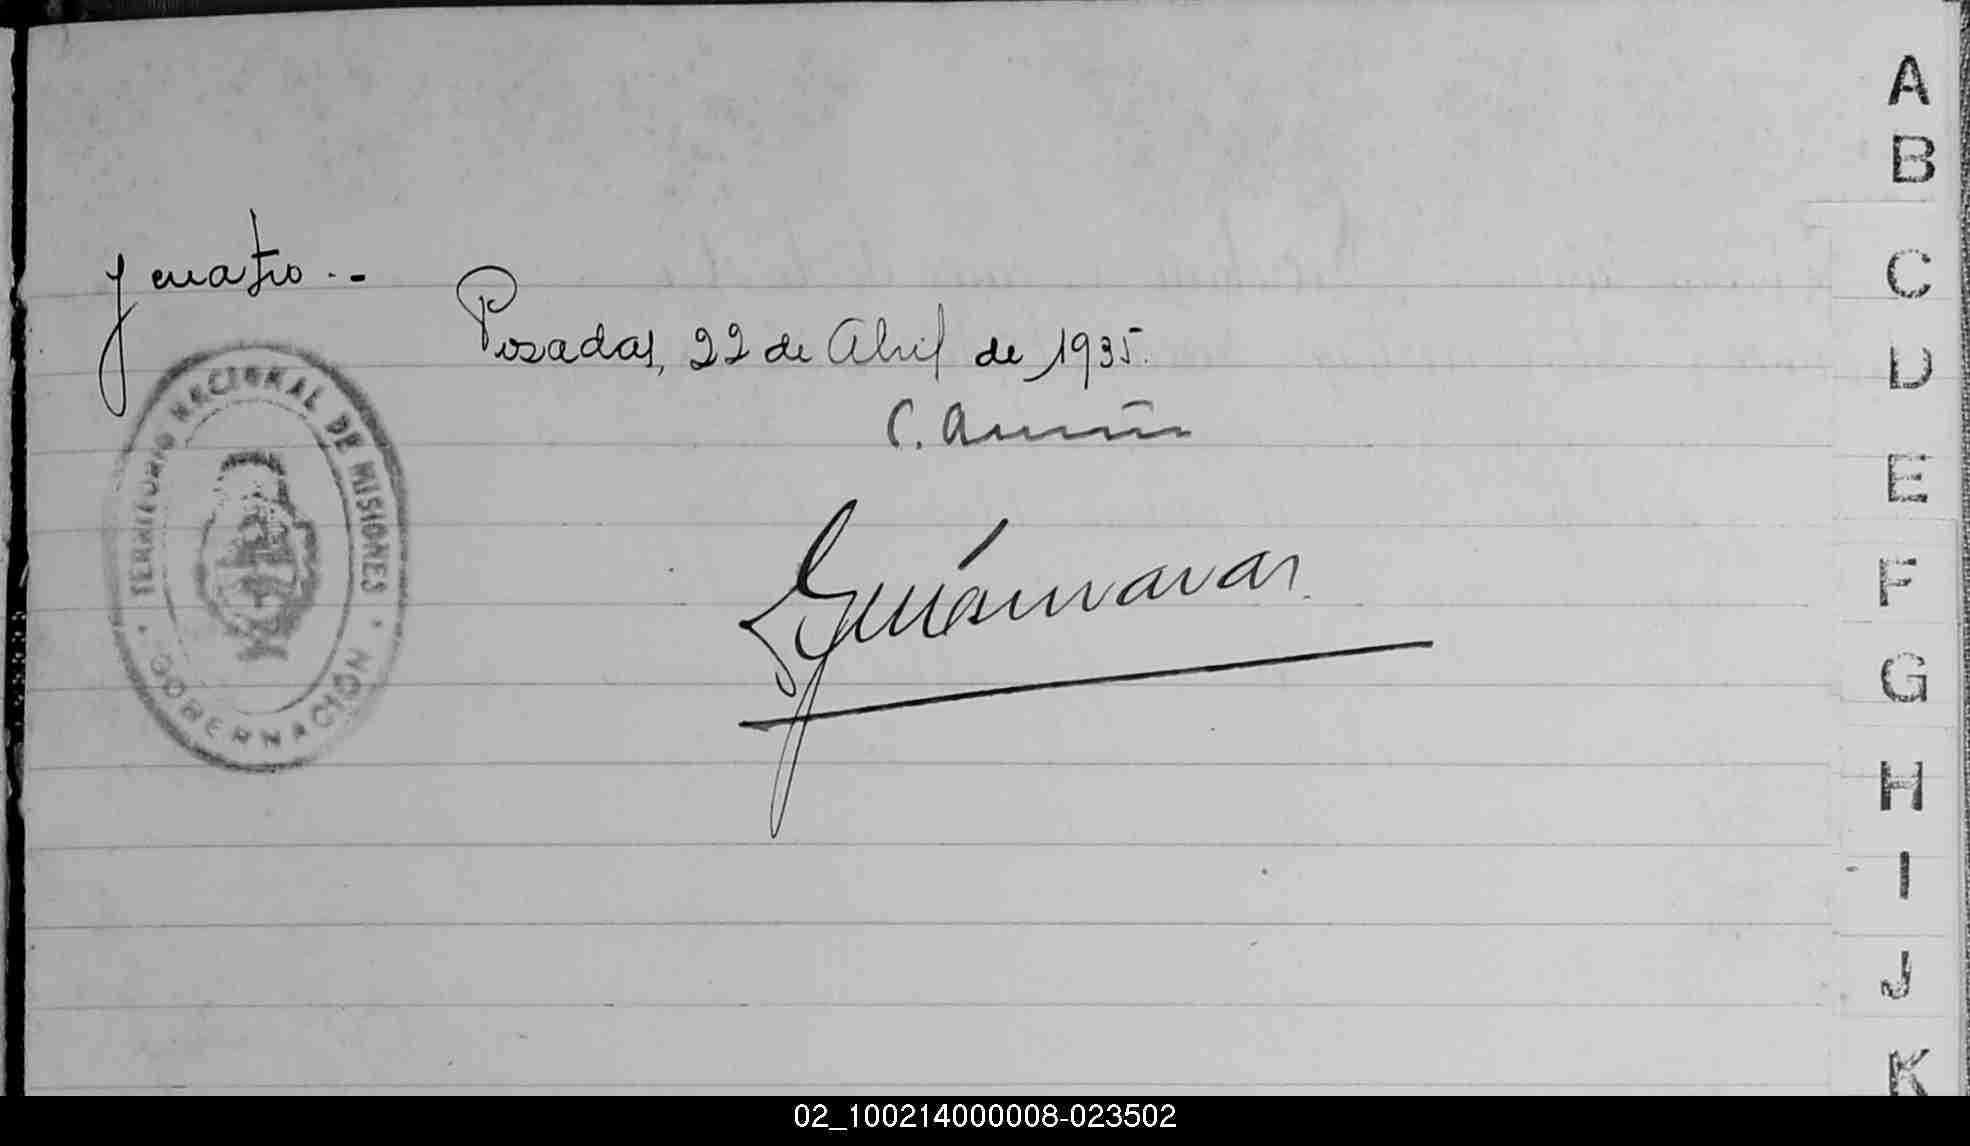 y cuatro.-
Posadas, 22 de Abril de 1935.
C. Acuña
TERRITORIO NACIONAL DE MISIONES
GOBERNACIÓN
A
B
C
D
E
F
G
H
I
J
K
02_100214000008-023502